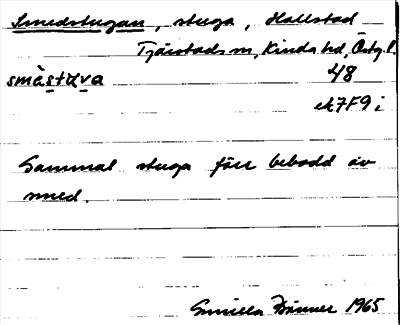 Smedstugan, stuga, Hallstad
Tjärstads sn, Kinda hd, Östg. l.
smäst​ųva 48
ek7F9i
Gammal stuga förr bebodd av
smed.
Gunilla 1965